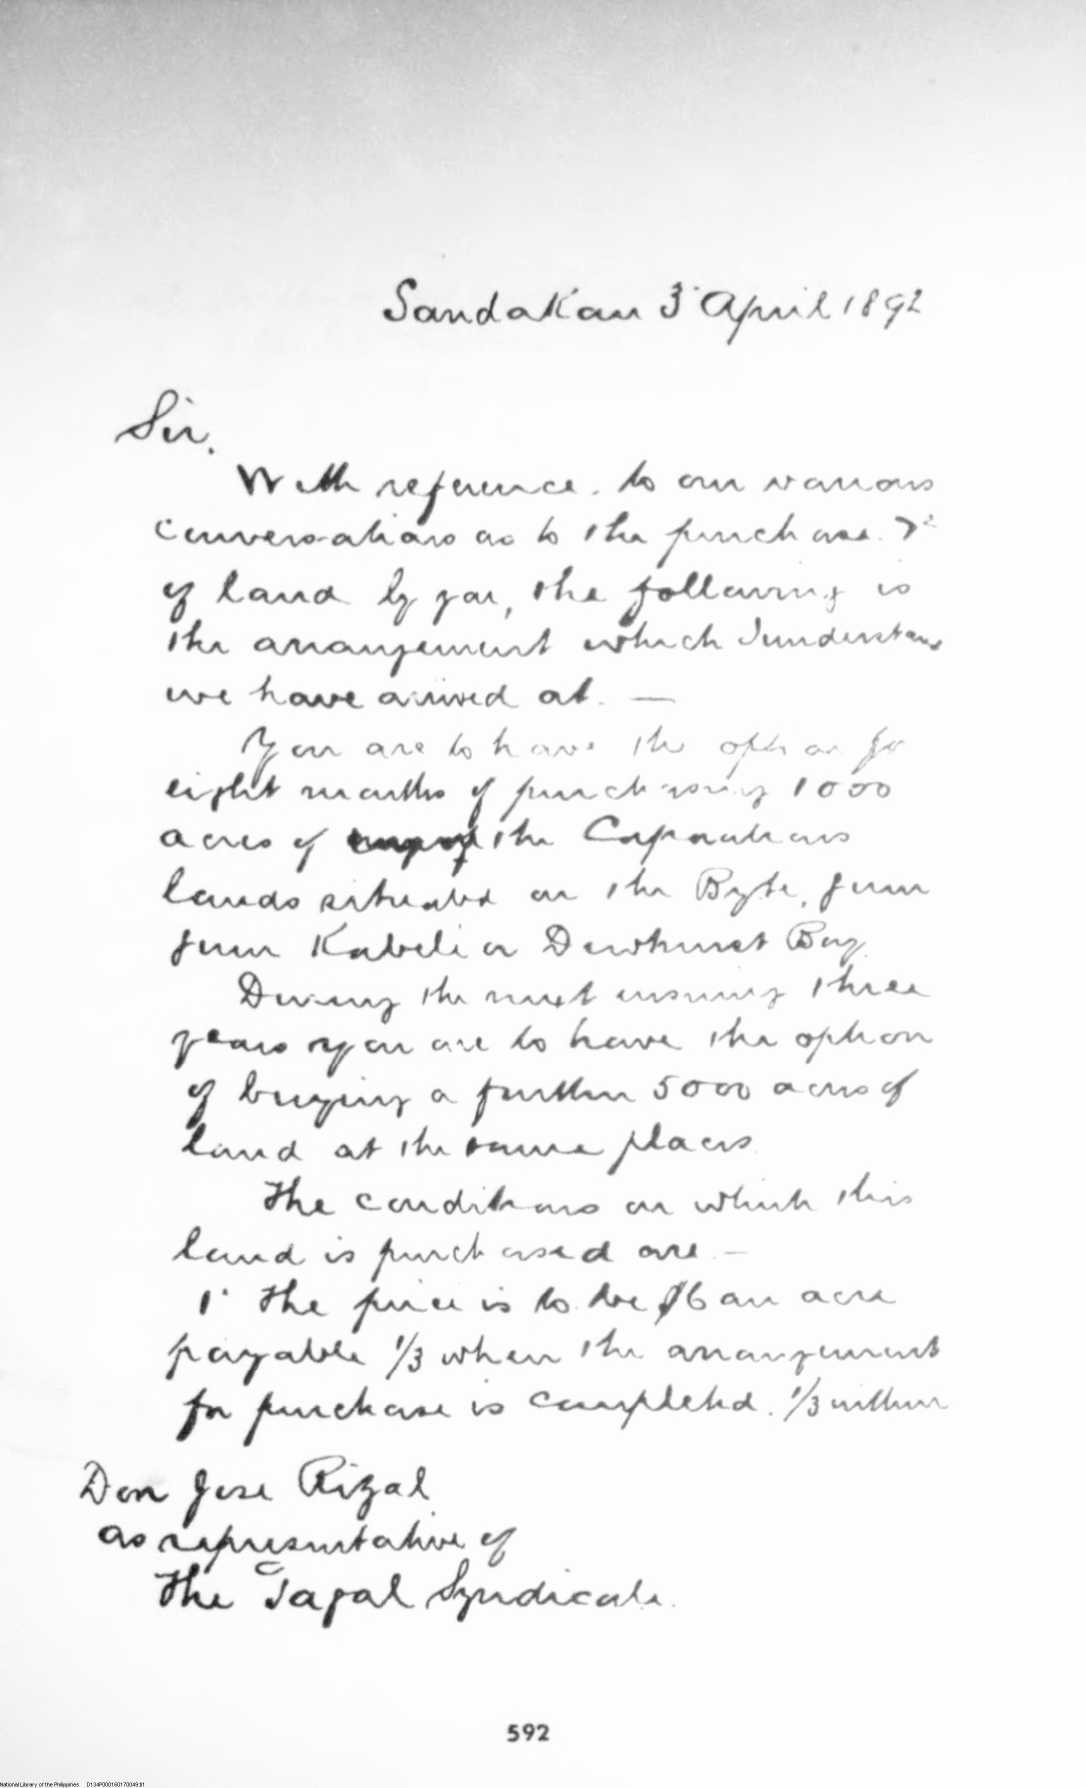 Sandakan 3 April 1892
Sir.
With reference to our various
conversations as to the purchase
of land by you, the following is
the arrangement which I understand
we have arrived at. —
You are to have the option for
eight months of purchasing 1000
acres of the Corporations
lands situated on the Byte, from
from Kabeli or Dewhurst Bay.
During the next ensuing three
years you are to have the option
of buying a further 5000 acres of
land at the same places
The conditions on which this
land is purchased are —
1 The price is to be $6 an acre
payable 1/3 when the arrangement
for purchase is completed. 1/3 within
Don Jose Rizal
as representative of
The Tagal Syndicate.
592
National Library of the Philippines